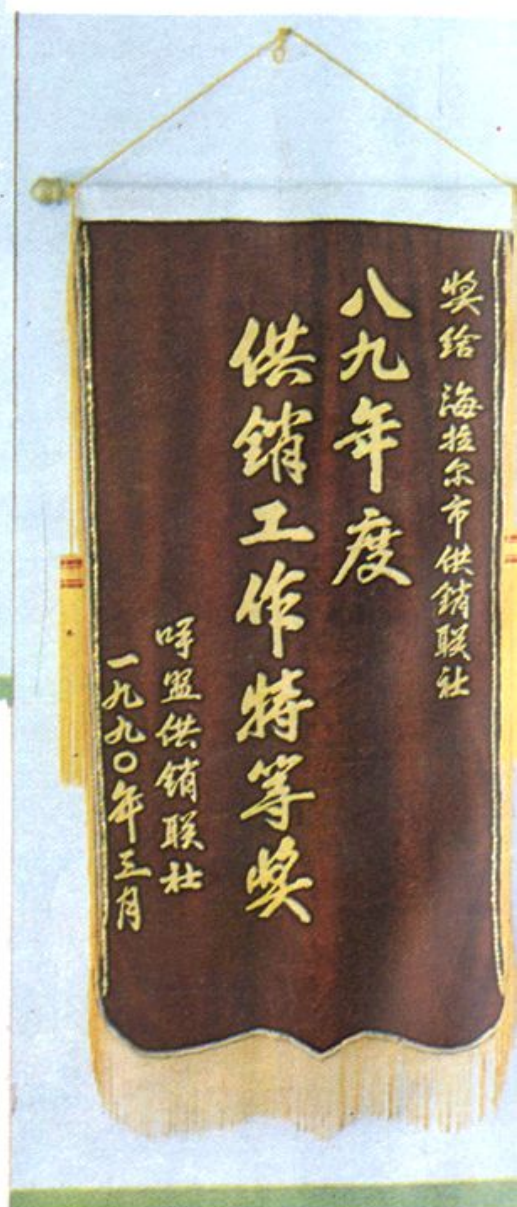 奖给 海拉尔市供销联社
八九年度
供销工作特等奖
呼盟供销联社
一九九〇年三月